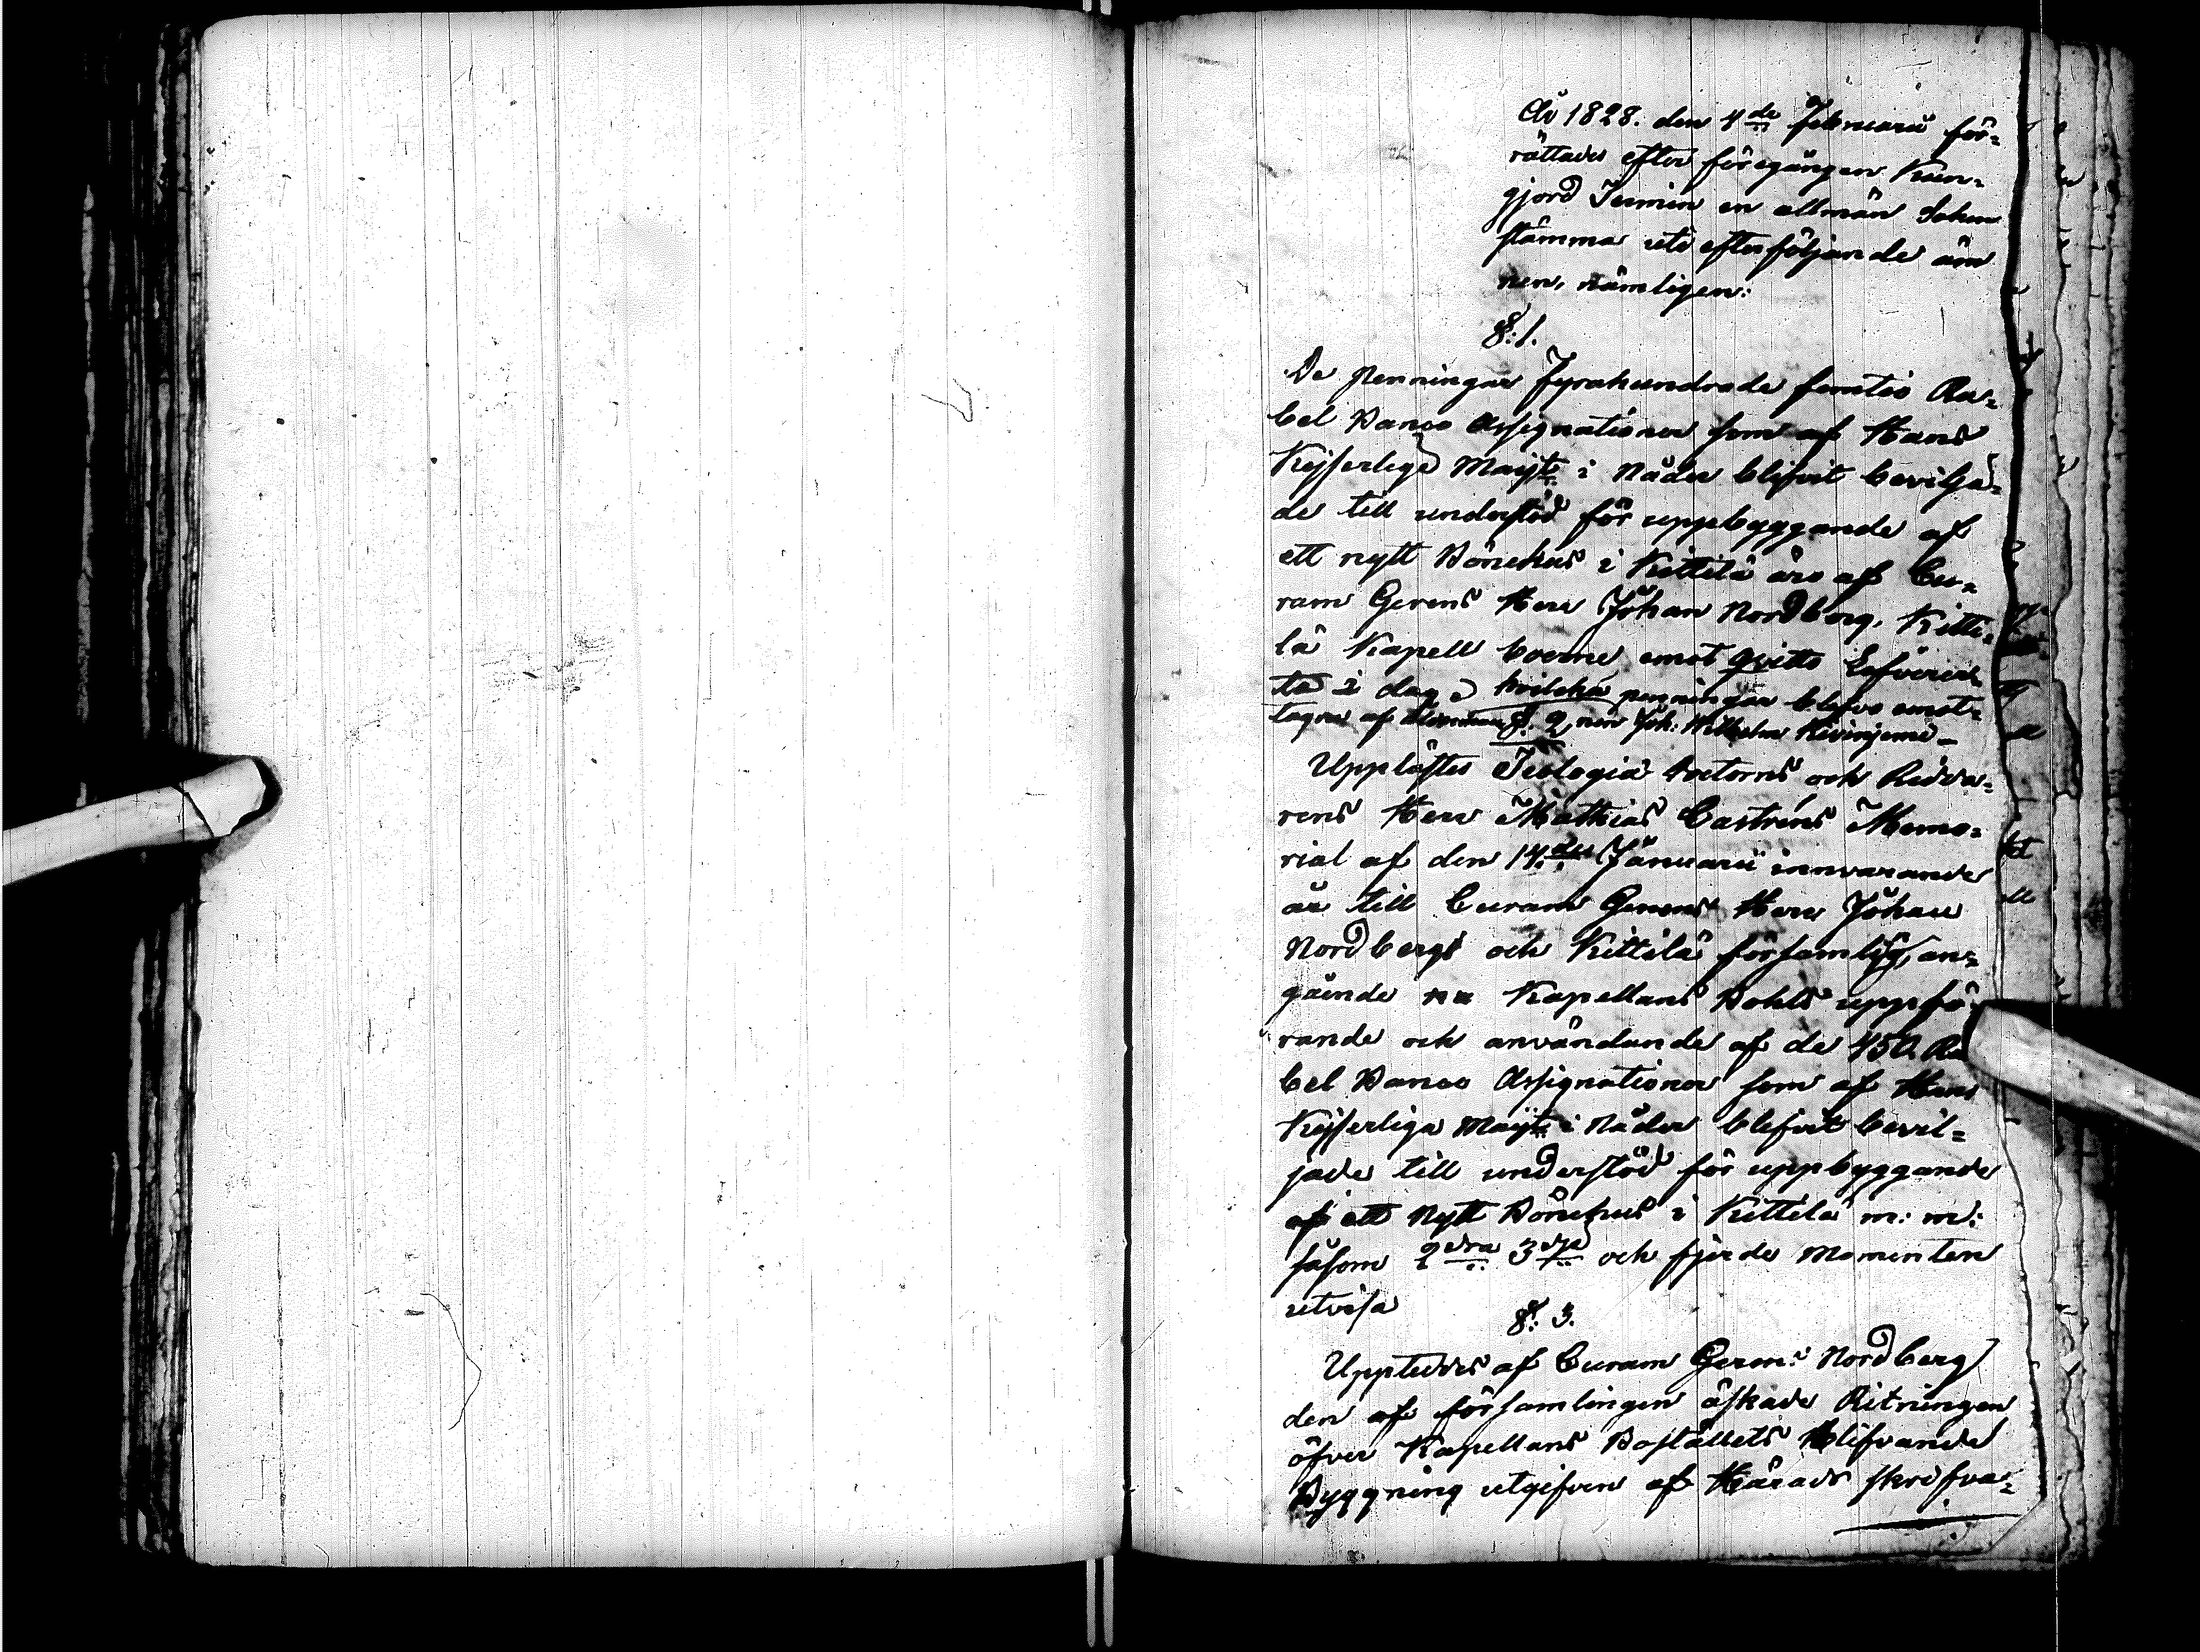 År 1828. den 4de Februarii för=
rättades efter föregången Kun=
gjord Termin en allmän Sokne
stämma uti efterföljande äm
nen, nämligen:
§: 1.
De penningar Fyrahundrade femtio Ru=
bel Banco Assignationer som af Hans
Kejserliga Maijt: i Nåder blifvit bevilja=
de till understöd för uppbyggande af
ett nytt Bönehus i Kittilä äro af Cu=
ram Gerens Herr Johan Nordberg, Kitti=
lä Kapell boerne emot qvitto Lefvere
te i dag, hvilcka penningar blefvo emot=
tagne af Joh: Wilhelm Kivinjemi –
§. 2
Upplästes Teologiæ Doctorns och Ridda=
rens Herr Mathias Castréns Memo=
rial af den 14de Januarii innvarande
år till Curam Gerens Herr Johan
Nordberg och Kittilä församlg, an=
gåinde Kapellans Bohls uppfö=
rande och användande af de 450. Ru
bel Banco Assignationer som af Hans
Kejserliga Maijt: i Nåder blifvit bevil=
jade till understöd för uppbyggande
af ett Nytt Bönehus i Kittelä m: m:
såsom 2dra 3dje och fjerde Momenten
utvisa
§: 3.
Uppteddes af Curam Gerens Nordberg
den af församlingen äskade Ritningen
öfver Kapellans Boställets blifvande
Byggning utgifven af Härads skrifva=